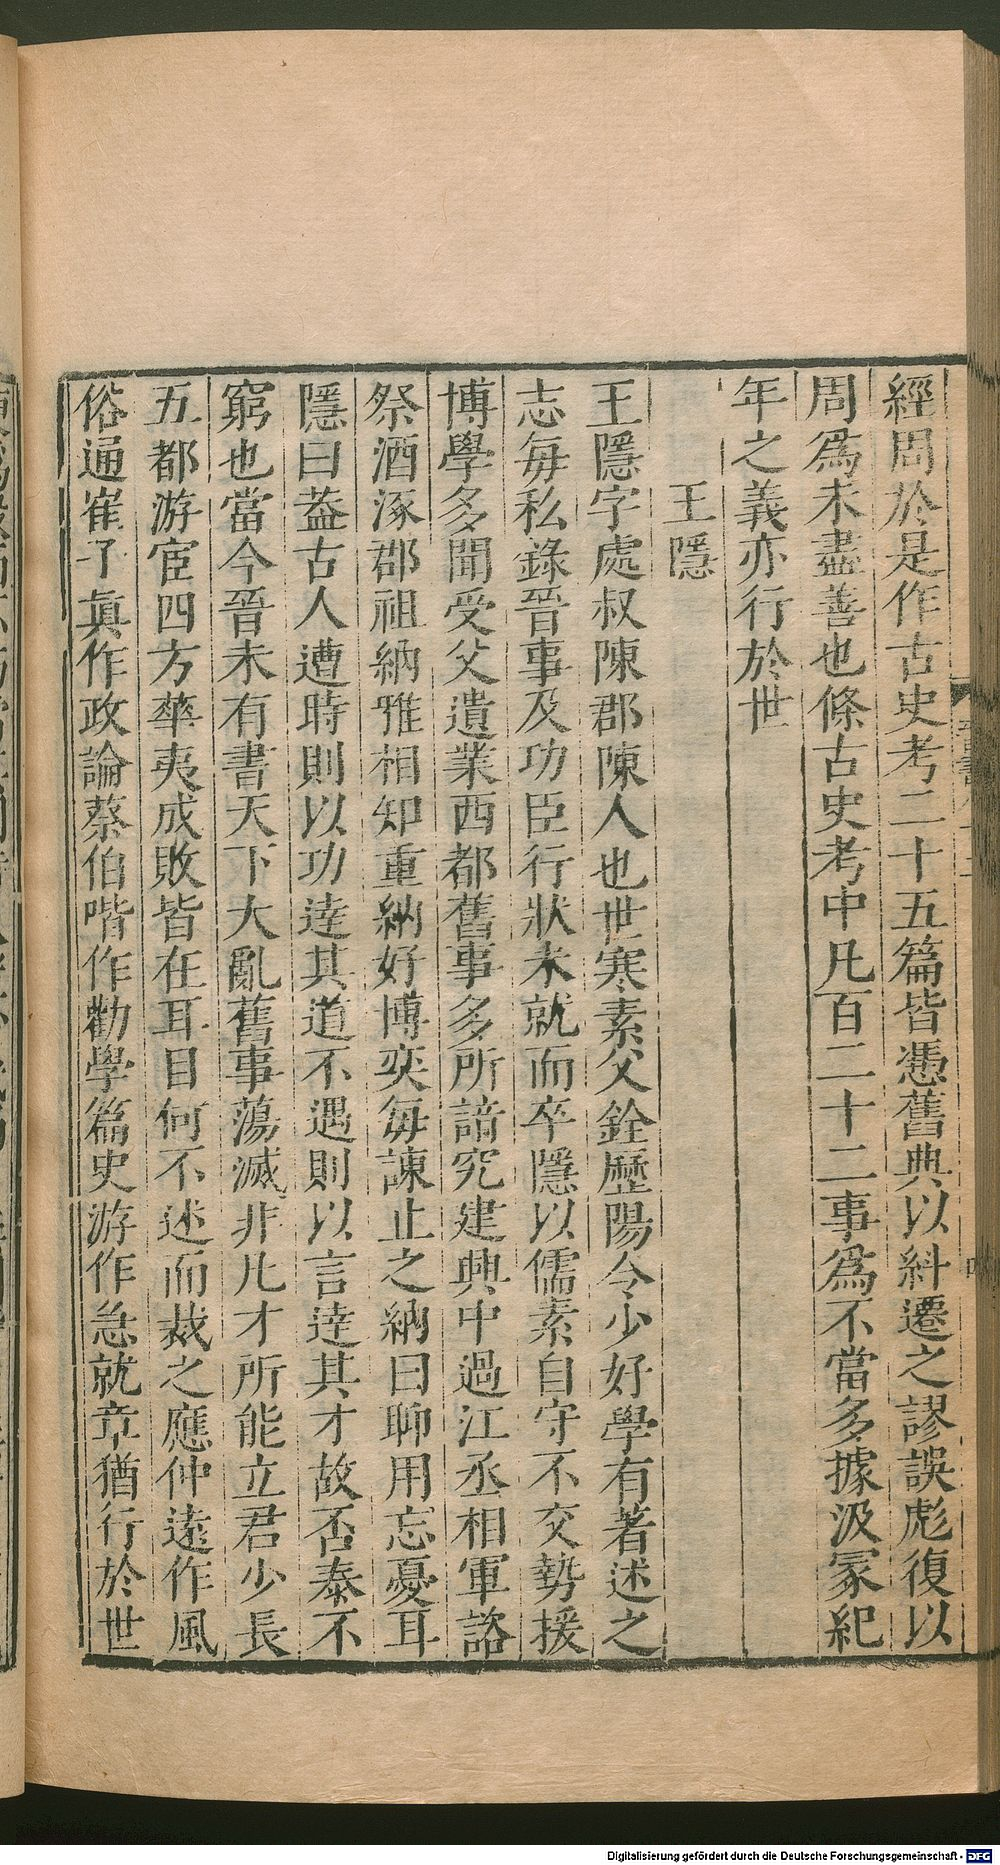 經周於是作古史考二十五篇皆憑舊典以糾遷之謬誤彪復以
周爲未盡善也條古史考中凡百二十二事爲不當多據汲冢紀
年之義亦行於世
王隱
王隱字處叔陳郡陳人也世寒素父銓歷陽令少好學有著述之
志每私錄晉事及功臣行狀未就而卒隱以儒素自守不交勢援
博學多聞受父遺業西都舊事多所諳究建興中過江丞相軍諮
祭酒涿郡祖納雅相知重納好博奕每諫止之納曰聊用忘憂耳
隱曰葢古人遭時則以功逹其道不遇則以言逹其才故否泰不
窮也當今晉未有書天下大亂舊事蕩滅非凡才所能立君少長
五都游宦四方華夷成敗皆在耳目何不述而裁之應仲遠作風
俗通崔子眞作政論蔡伯喈作勸學篇史游作急就章猶行於世
Digitalisierung gefördert durch die Deutsche Forschungsgemeinschaft - DFG